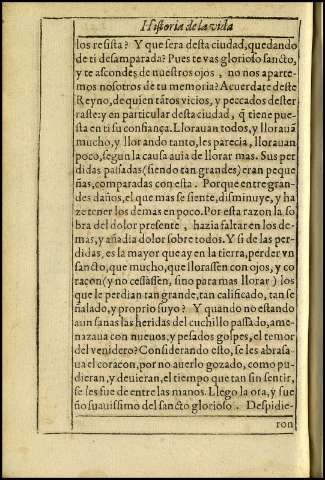 Historia de la vida
los resista? Y que sera desta ciudad, quedando
de ti desamparada? Pues te vas glorioso sancto,
y te ascondes de nuestros ojos, no nos aparte-
mos nosotros de tu memoria? Acuerdate deste
Reyno, de quien tãtos vicios, y peccados dester
raste: y en particular desta ciudad, q̃ tiene pue-
sta en ti su confiança. Llorauan todos, y llorauã
mucho, y llorando tanto, les parecia, llorauan
poco, segun la causa auia de llorar mas. Sus per
didas passadas (siendo tan grandes) eran peque
ñas, comparadas con esta. Porque entre gran-
des daños, el que mas se siente, disminuye, y ha
ze tener los demas en poco. Por esta razon la so
bra del dolor presente, hazia faltar en los de-
mas, y añadia dolor sobre todos. Y si de las per-
didas, es la mayor que ay en la tierra, perder vn
sancto, que mucho, que llorassen con ojos, y co
raçon (y no cessassen, sino para mas llorar) los
que le perdian tan grande, tan calificado, tan se
ñalado, y proprio suyo? Y quando no estando
aun sanas las heridas del cuchillo passado, ame-
nazaua con nueuos, y pesados golpes, el temor
del venidero? Considerando esto, se les abrasa-
ua el coracon, por no auerlo gozado, como pu-
dieran, y deuieran, el tiempo que tan sin sentir,
se les fue de entre las manos. Llego la ora, y sue
ño suauissimo del sancto glorioso. Despidie-
ron